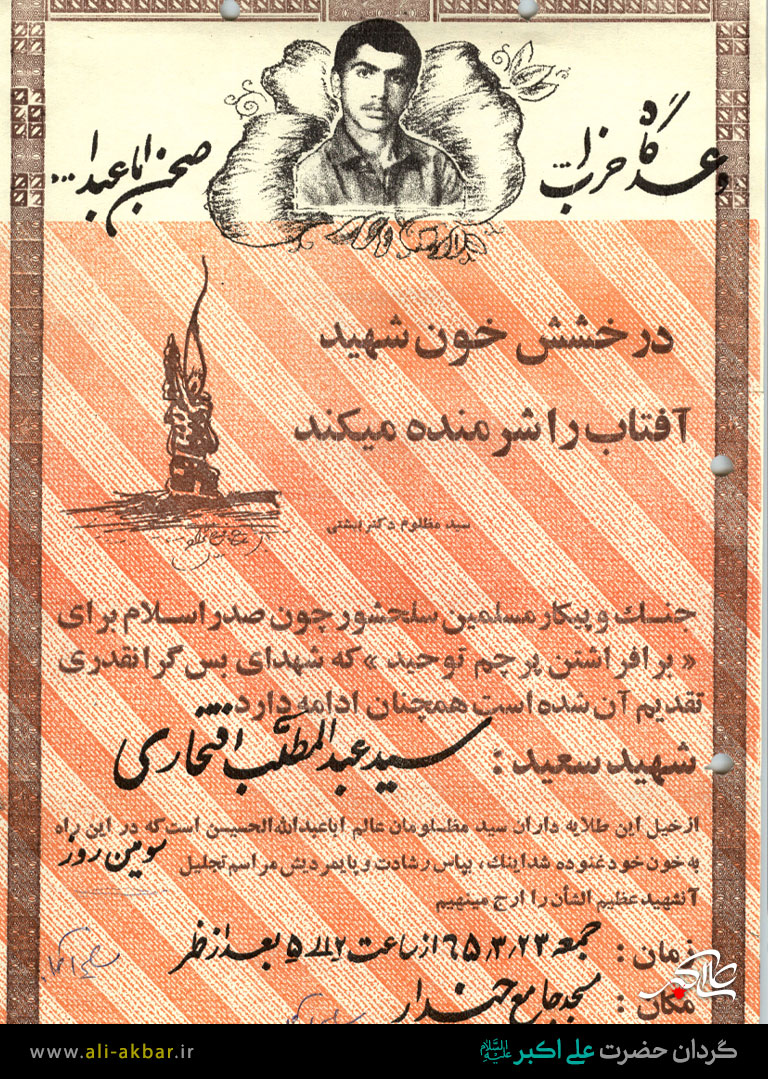 وعدگاه حزب ا...
صحن اباعبدا...
درخشش خون شهید
آفتاب را شرمنده میکند
سید مظلوم دکتر بهشتی
جنگ و پیکار مسلمین سلحشور چون صدر اسلام برای
« برافراشتن پرچم توحید » که شهدای بس گرانقدری
تقدیم آن شده است همچنان ادامه دارد
شهید سعید : سید عبدالمطلب افتخاری
از خیل این طلایه داران سید مظلومان عالم اباعبدالله الحسین است که در این راه
به خون خود غنوده شد اینک ، بپاس رشادت و پایمردیش مراسم تجلیل سومین روز
آنشهید عظیم الشأن را ارج مینهیم
زمان : جمعه ۶۵٫۳٫۲۳ از ساعت ۲ الی ۵ بعد از ظهر
مکان : مسجد جامع
علی اکبر
www.ali-akbar.ir
گردان حضرت علی اکبر علیه السلام